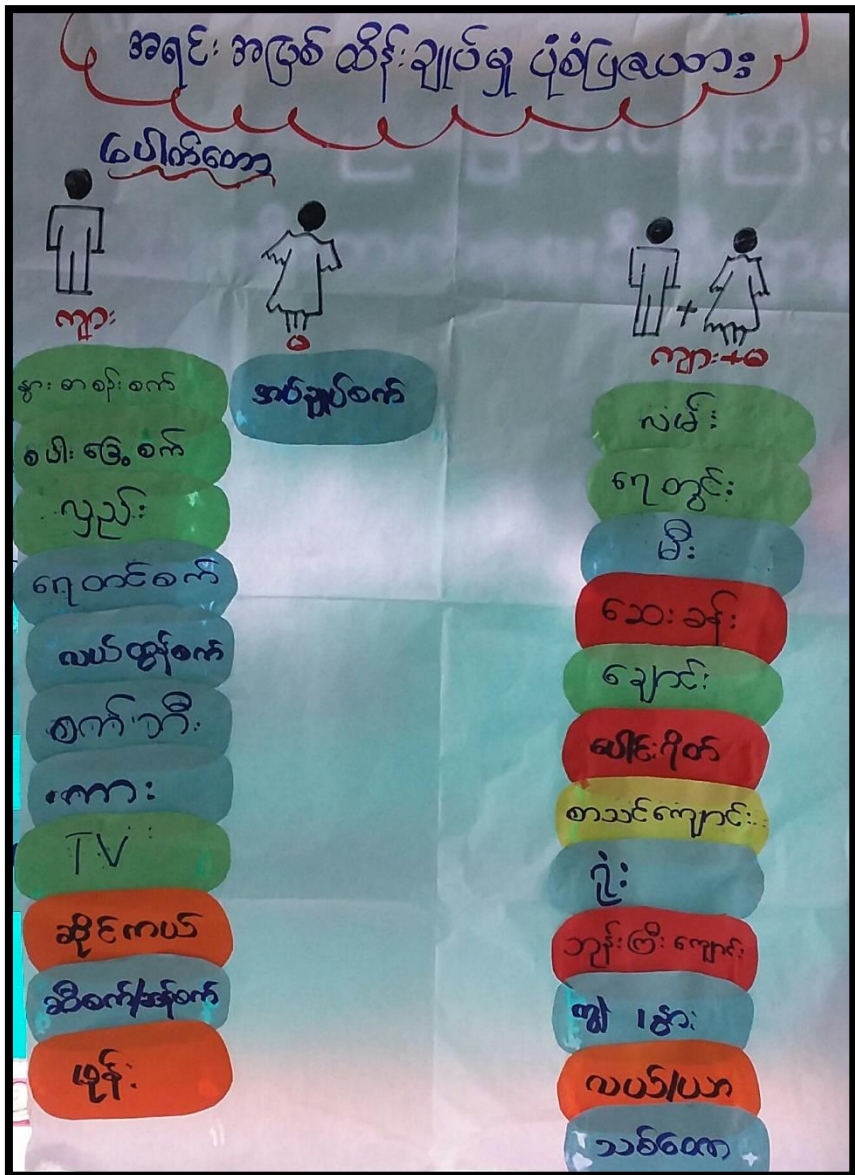 အရင်းအမြစ် ထိန်းချုပ်မှု ပုံစံပြဇယား
ပေါက်တော
ကျား
နွားစာစဉ်းစက်
စပါးခြွေစက်
လှည်း
ရေတင်စက်
လယ်ထွန်စက်
စက်ဘီး
ကား
TV
ဆိုင်ကယ်
ဆီစက်/ဆန်စက်
ဖုန်း
မ
အပ်ချုပ်စက်
ကျား+မ
လမ်း
ရေတွင်း
မီး
ဆေးခန်း
ချောင်း
ပေါင်းဂိုတ်
စာသင်ကျောင်း
ဥုံး
ဘုန်းကြီးကျောင်း
ကျွဲ၊နွား
လယ်/ယာ
သစ်တော